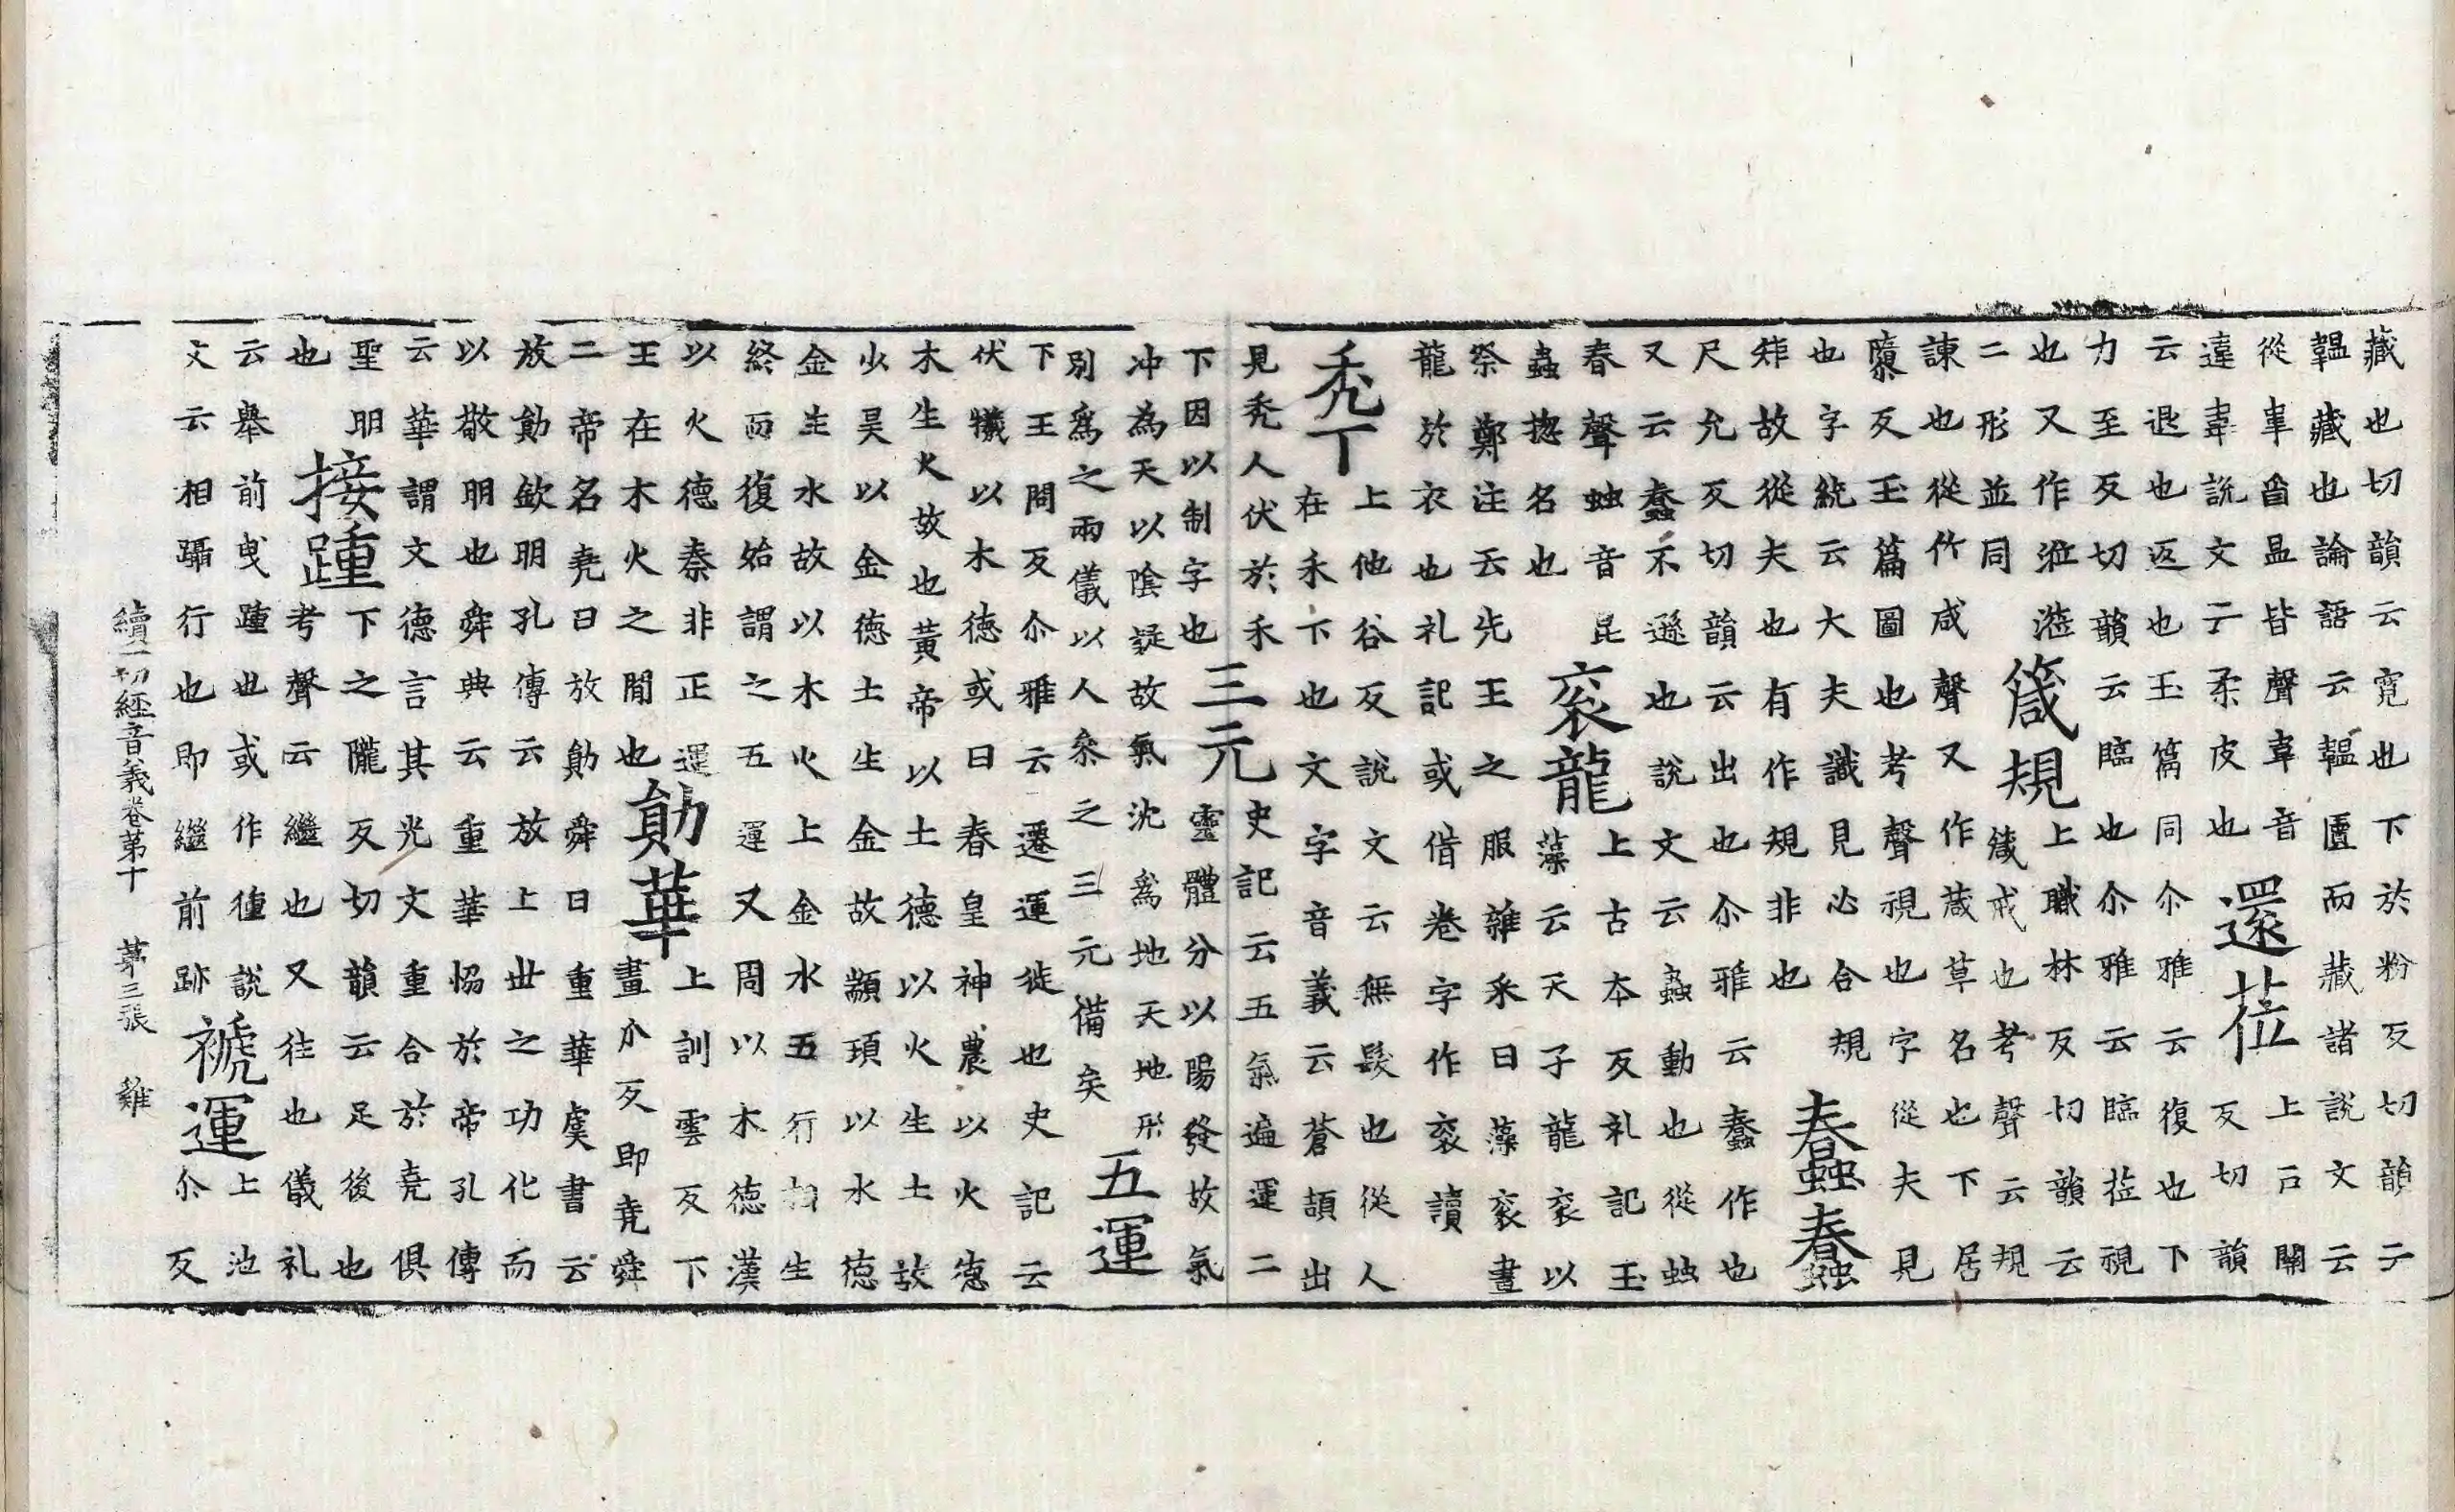 藏也切韻云寬也下於粉反切韻云
韞藏也論語云韞匱而藏諸說文云
從韋昷聲韋音
違韋說文云柔皮也
還莅
上戶關
反切韻
云退也返也玉篇同尒雅云復也下
力至反切韻云臨也尒雅云臨莅視
也又作涖蒞
二形並同
箴規
上職林反切韻云
箴戒也考聲云規
諫也從竹咸聲又作葴草名也下居
隳反玉篇圖也考聲視也字從夫見
也字統云大夫識見必合規
矩故從夫也有作規非也
蠢蠢
尺允反切韻云出也尒雅云蠢作也
又云蠢不遜也說文云蟲動也從䖵
春聲䖵音昆
蟲揔名也
衮龍
上古本反礼記玉
藻云天子龍衮以
祭鄭注云先王之服雜采曰藻衮畫
龍於衣也礼記或借卷字作衮讀
禿丁
上他谷反說文云無髮也從人
在禾下也文字音義云蒼頡出
見禿人伏於禾
下因以制字也
三元
史記云五氣遍運二
靈體分以陽發故氣
冲為天以陰凝故氣沈為地天地形
別為之兩儀以人叅之三元備矣
五運
下王問反尒雅云遷運徙也史記云
伏犧以木德或曰春皇神農以火德
木生火故也黃帝以土德以火生土故
少昊以金德土生金故顓頊以水德
金生水故以木火上金水五行相生
終而復始謂之五運又周以木德漢
以火德秦非正運
王在木火之閒也
勛華
上訓雲反下
畫尒反即堯舜
二帝名堯曰放勛舜曰重華虞書云
放勛欽明孔傳云放上世之功化而
以敬明也舜典云重華恊於帝孔傳
云華謂文德言其光文重合於堯俱
聖明
也
接踵
下之隴反切韻云足後也
考聲云繼也又往也儀礼
云舉前曳踵也或作㣫說
文云相躡行也即繼前跡
褫運
上池
尒反
續一切經音義卷第十 第三張 雞